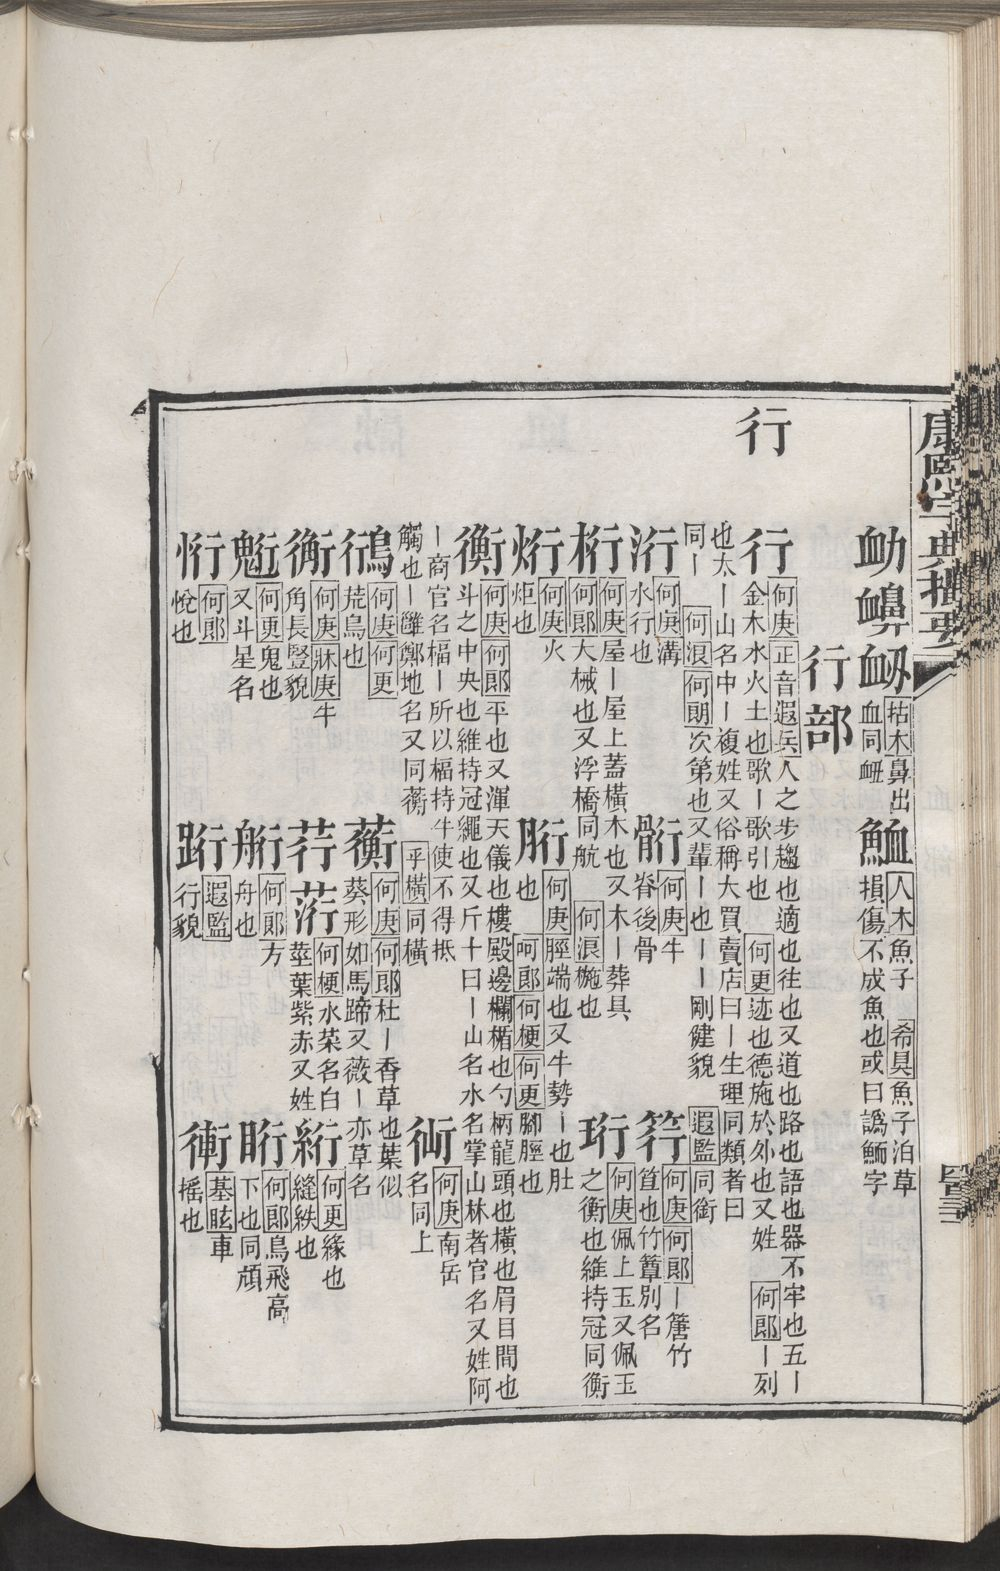 康熙字典撮要
衂䶊衄
枯木鼻出
血同衄
䱐
人木魚子
希具魚子泊草
損傷不成魚也或曰譌䱐字
行部
行
行
何庚正音遐兵人之步趨也適也往也又道也路也語也器不牢也五丨
金木水火土也歌丨歌引也
何更迹也德施於外也又姓
何郎丨列
也太丨山名中丨複姓又俗稱大買賣店曰丨生理同類者曰
同丨
何浪何朗次第也又輩丨也丨剛健貌
遐監同銜
洐
何庚溝
水行也
䯒
何庚牛
脊後骨
筕
何庚何郎丨篖竹
笪也竹簟別名
桁
何庚屋丨屋上蓋橫木也又木丨葬具
何郎大械也又浮橋同航
何浪椸也
珩
何庚佩上玉又佩玉
之衡也維持冠同衡
烆
何庚火
炬也
胻
何庚脛端也又牛勢丨也肚
也
呵郎何梗何更腳脛也
衡
何庚何郎平也又渾天儀也樓殿邊欄楯也勺柄龍頭也橫也眉目間也
斗之中央也維持冠繩也又斤十曰丨山名水名掌山林者官名又姓阿
丨商官名楅丨所以楅持牛使不得抵
觸也丨雝鄭地名又同蘅
乎橫同橫
𧗾
何庚南岳
名同上
鴴
何庚何更
荒鳥也
蘅
何庚何郎杜丨香草也葉似
葵形如馬蹄又薇丨亦草名
𧘂
何庚牀庚牛
角長豎貌
荇莕
何梗水菜名白
莖葉紫赤又姓
絎
何更緣也
縫紩也
䰢
何更鬼也
又斗星名
䑪
何郎方
舟也
䀪
何郎鳥飛高
下也同頏
㤚
何郎
悅也
䟰
遐監
行貌
䡓
基眩車
搖也